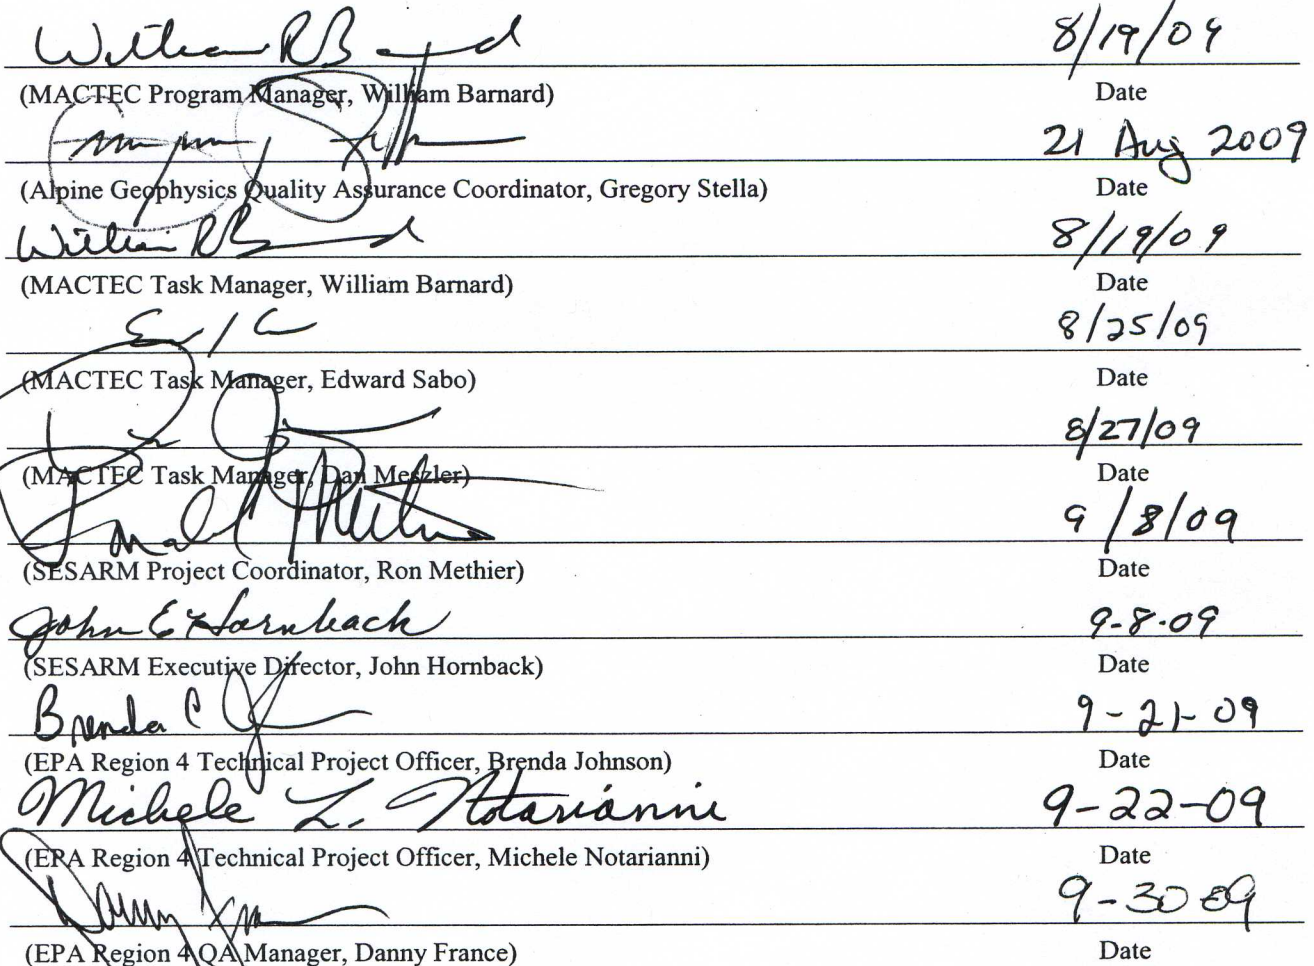 William R B 8/19/09
(MACTEC Program Manager, William Barnard) Date
21 Aug 2009
(Alpine Geophysics Quality Assurance Coordinator, Gregory Stella) Date
William R B 8/19/09
(MACTEC Task Manager, William Barnard) Date
8/25/09
(MACTEC Task Manager, Edward Sabo) Date
8/27/09
(MACTEC Task Manager, Dan Meszler) Date
9/8/09
(SESARM Project Coordinator, Ron Methier) Date
John E Hornback 9-8-09
(SESARM Executive Director, John Hornback) Date
Brenda C 9-21-09
(EPA Region 4 Technical Project Officer, Brenda Johnson) Date
Michele L. Notarianni 9-22-09
(EPA Region 4 Technical Project Officer, Michele Notarianni) Date
Danny 9-30-09
(EPA Region 4 QA Manager, Danny France) Date